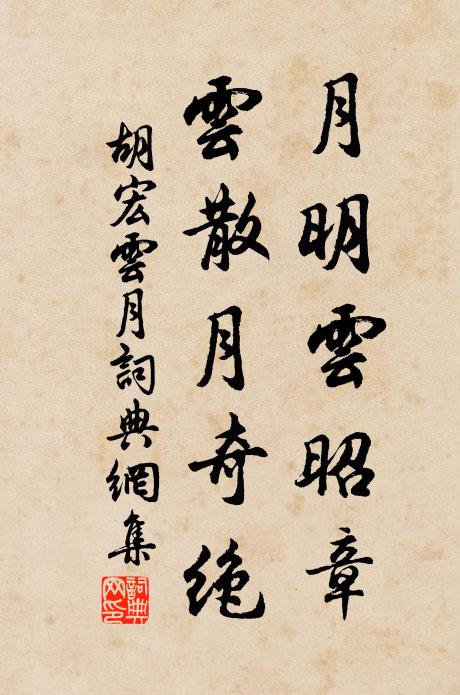 月明雲昭章
雲散月奇絶
胡宏雲月詞典網集
詞典網印